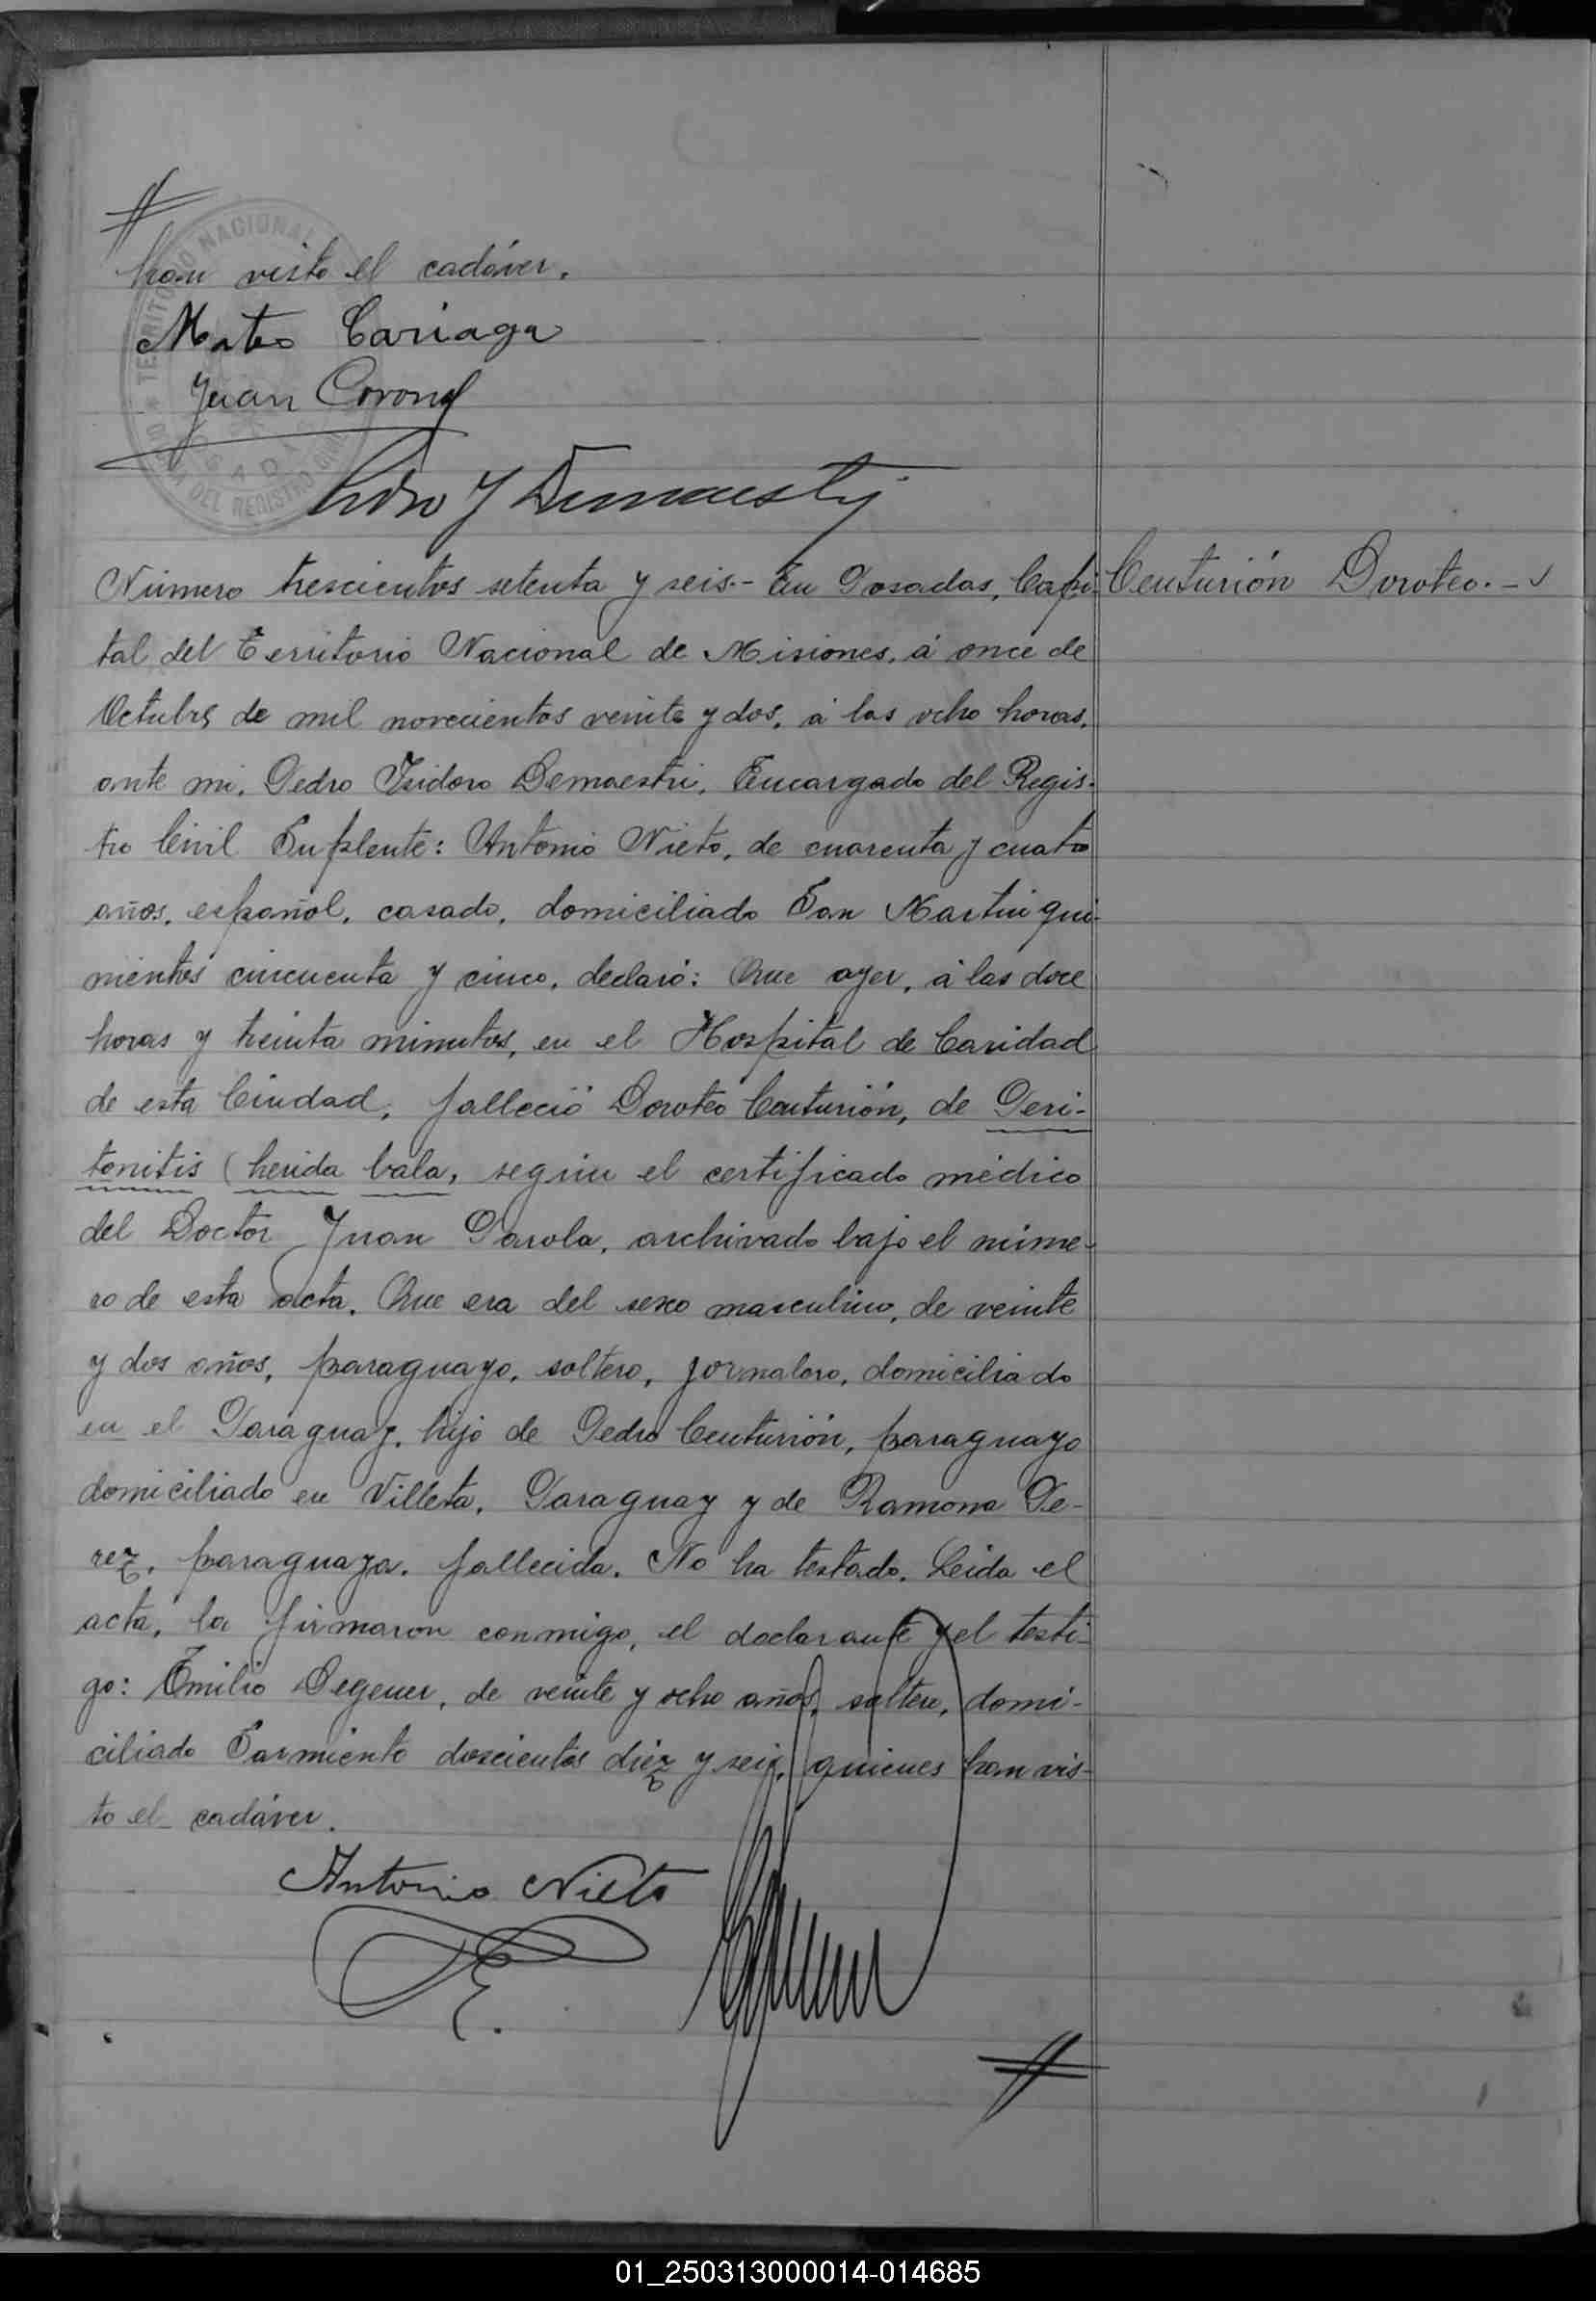 han visto el cadáver.
Mateo Cariaga
Juan Coronel
Pedro I Demaestri
TERRITORIO NACIONAL
POSADAS
OFICINA DEL REGISTRO CIVIL
Número trescientos setenta y seis.- En Posadas, Capi-
Centurión Doroteo. -
tal del Territorio Nacional de Misiones, á once de
Octubre de mil novecientos veinte y dos, á las ocho horas,
ante mi, Pedro Isidoro Demaestri, Encargado del Regis-
tro Civil Suplente: Antonio Nieto, de cuarenta y cuatro
años, español, casado, domiciliado San Martin qui-
nientos cincuenta y cinco, declaró: Que ayer, á las doce
horas y treinta minutos, en el Hospital de Caridad
de esta Ciudad, falleció Doroteo Centurión, de Peri-
tonitis (herida bala, según el certificado médico
del Doctor Juan Parola, archivado bajo el núme-
ro de esta acta. Que era del sexo masculino, de veinte
y dos años, paraguayo, soltero, jornalero, domiciliado
en el Paraguay, hijo de Pedro Centurión, paraguayo
domiciliado en Villeta, Paraguay y de Ramona Pe-
rez, paraguaya, fallecida. No ha testado. Leida el
acta, la firmaron conmigo, el declarante y el testi-
go: Emilio Degener, de veinte y ocho años, soltero, domi-
ciliado Sarmiento doscientos diéz y seis, quienes han vis-
to el cadáver.
Antonio Nieto
01_250313000014-014685